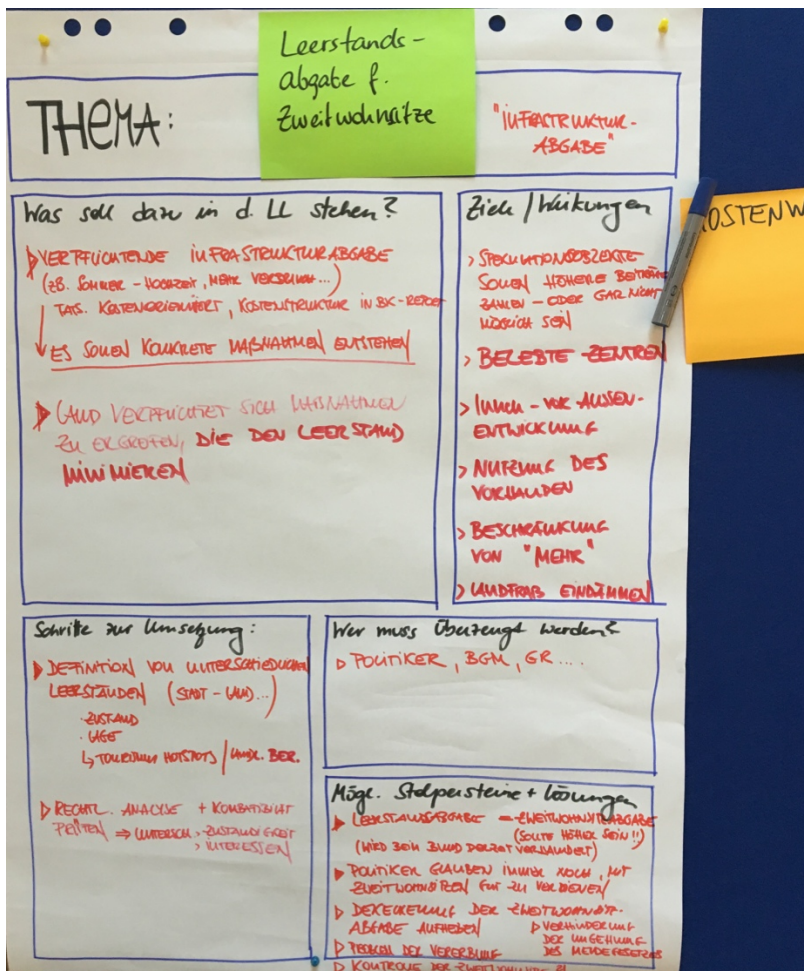 Leerstands-
abgabe f.
Zweitwohnsitze
THEMA:
"INFRASTRUKTUR-
ABGABE"
KOSTENW
Was soll dazu in d. LL stehen?
VERPFLICHTENDE INFRASTRUKTURABGABE
(ZB. SOMMER - HOCHZEIT, MEHR
TATS. KOSTENORIENTIERT, KOSTENSTRUKTUR IN
ES SOLLEN KONKRETE MAßNAHMEN ENTSTEHEN
LAND VERPFLICHTET SICH MAßNAHMEN
ZU ERGREIFEN, DIE DEN LEERSTAND
MINIMIEREN
Ziele / Wirkungen
> SPEKULATIONSOBJEKTE
SOLLEN HÖHERE BEITRÄGE
ZAHLEN - ODER GAR NICHT
MÖGLICH SEIN
> BELEBTE ZENTREN
> INNEN - VOR AUSSEN-
ENTWICKLUNG
> NUTZUNG DES
VORHANDEN
> BESCHRÄNKUNG
VON "MEHR"
> LANDFRAß EINDÄMMEN
Schritte zur Umsetzung:
DEFINITION VON UNTERSCHIEDLICHEN
LEERSTÄNDEN (STADT - LAND...)
· ZUSTAND
· LAGE
↳ TOURISMUS HOTSPOTS / LÄNDL. BER.
RECHTL. ANALYSE + KOMPATIBILITÄT
PRÜFEN ⇒ UNTERSCH. > ZUSTÄNDIGKEIT
> INTERESSEN
Wer muss überzeugt werden?
POLITIKER, BGM, GR ....
Mögl. Stolpersteine + Lösungen
LEERSTANDSABGABE - ZWEITWOHNSITZABGABE
(SOLLTE HÖHER SEIN!!)
(WIRD BEIM BUND DERZEIT VERHANDELT)
POLITIKER GLAUBEN IMMER NOCH, MIT
ZWEITWOHNSITZEN GUT ZU VERDIENEN
DECKELUNG DER ZWEITWOHNSITZ-
ABGABE AUFHEBEN
VERHINDERUNG
DER UMGEHUNG
DES MELDEGESETZES
PROBLEM DER VERERBUNG
KONTROLLE DER